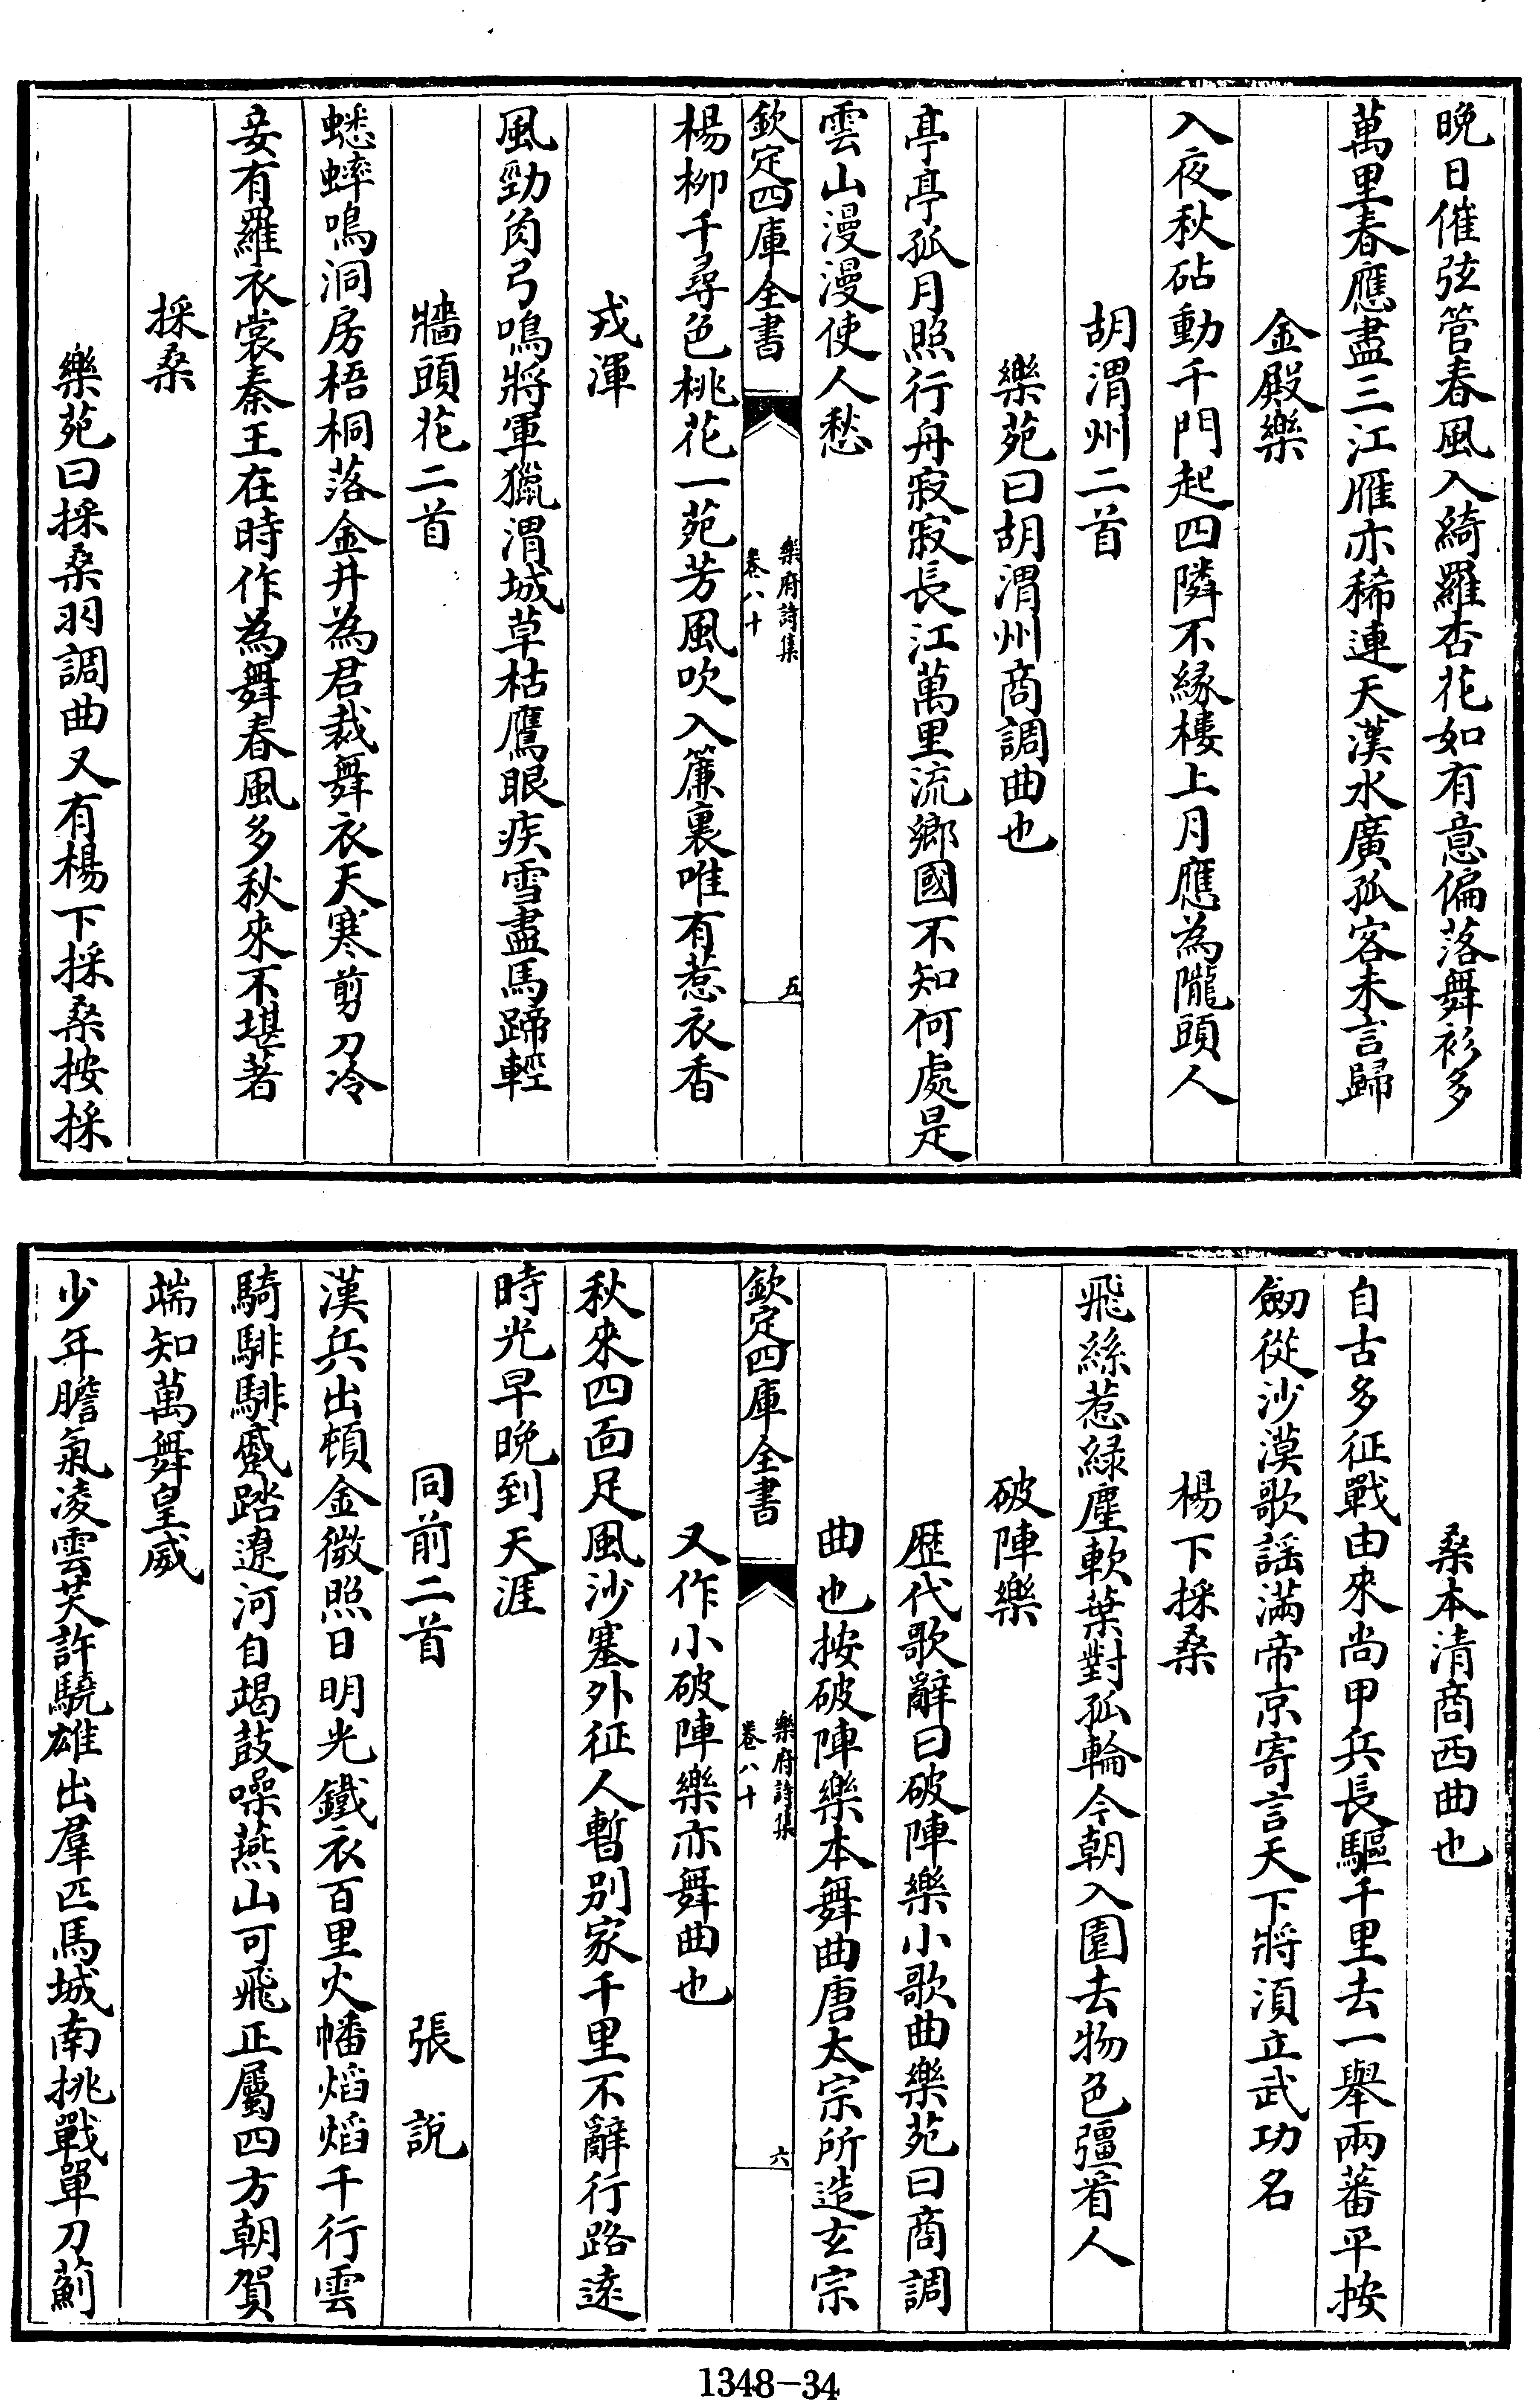 晚日催弦管春風入綺羅杏花如有意偏落舞衫多
萬里春應盡三江雁亦稀連天漢水廣孤客未言歸
金殿樂
入夜秋砧動千門起四隣不緣樓上月應為隴頭人
胡渭州二首
樂苑曰胡渭州商調曲也
亭亭孤月照行舟寂寂長江萬里流鄉國不知何處是
雲山漫漫使人愁
欽定四庫全書
樂府詩集
卷八十
五
楊柳千尋色桃花一苑芳風吹入簾裏唯有惹衣香
戎渾
風勁角弓鳴將軍獵渭城草枯鷹眼疾雪盡馬蹄輕
牆頭花二首
蟋蟀鳴洞房梧桐落金井為君裁舞衣天寒剪刀冷
妾有羅衣裳秦王在時作為舞春風多秋來不堪著
採桑
樂苑曰採桑羽調曲又有楊下採桑按採
桑本清商西曲也
自古多征戰由來尚甲兵長驅千里去一舉兩蕃平按
劒從沙漠歌謡滿帝京寄言天下將湏立武功名
楊下採桑
飛絲惹緑塵軟葉對孤輪今朝入園去物色彊看人
破陣樂
歴代歌辭曰破陣樂小歌曲樂苑曰商調
曲也按破陣樂本舞曲唐太宗所造玄宗
欽定四庫全書
樂府詩集
卷八十
六
又作小破陣樂亦舞曲也
秋來四面足風沙塞外征人暫别家千里不辭行路遠
時光早晚到天涯
同前二首 張說
漢兵出頓金微照日明光鐵衣百里火幡焰焰千行雲
騎騑騑蹙踏遼河自竭鼓噪燕山可飛正屬四方朝賀
端知萬舞皇威
少年膽氣凌雲共許驍雄出羣匹馬城南挑戰單刀薊
1348-34